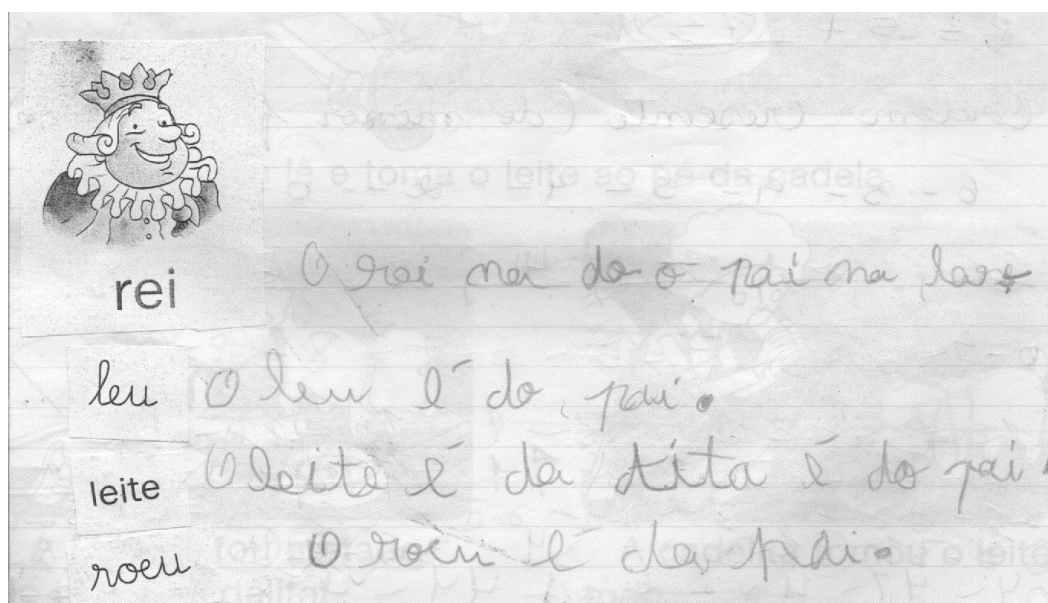 rei
O rei na do o pai na
leu
O leu é do pai.
leite
O leite é da tita é do pai
roeu
O roeu é da pai.